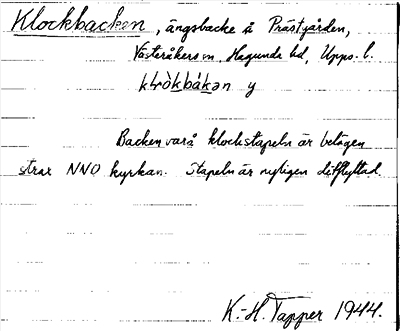 Klockbacken, ängsbacke å Prästgården,
Västeråkers sn, Hagunda hd, Upps. l.
y
Backen varå klockstapeln är belägen
strax NNO kyrkan. Stapeln är nyligen ditflyttad.
K.-H. Tapper 1944.